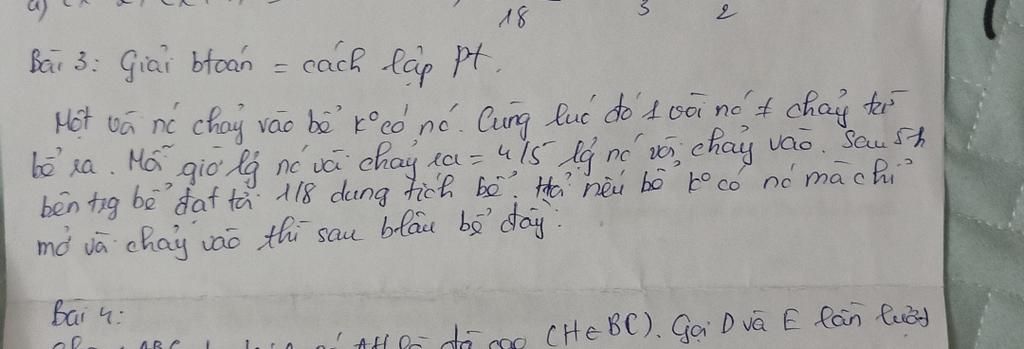 a)
18 3 2
Bài 3: Giải btoán = cách lập pt.
Một vòi nc chảy vào bể k° có nc. Cùng lúc đó 1 vòi nc ≠ chảy từ
bể ra. Mỗi giờ lg nc vòi chảy ra = 4/5 lg nc vòi chảy vào. Sau 5h
bên trg bể đạt tới 1/8 dung tích bể. Hỏi nếu bể k° có nc mà chỉ
mở vòi chảy vào thì sau blâu bể đầy.
Bài 4:
ABC AH là đg cao (H∈BC). Gọi D và E lần lượt